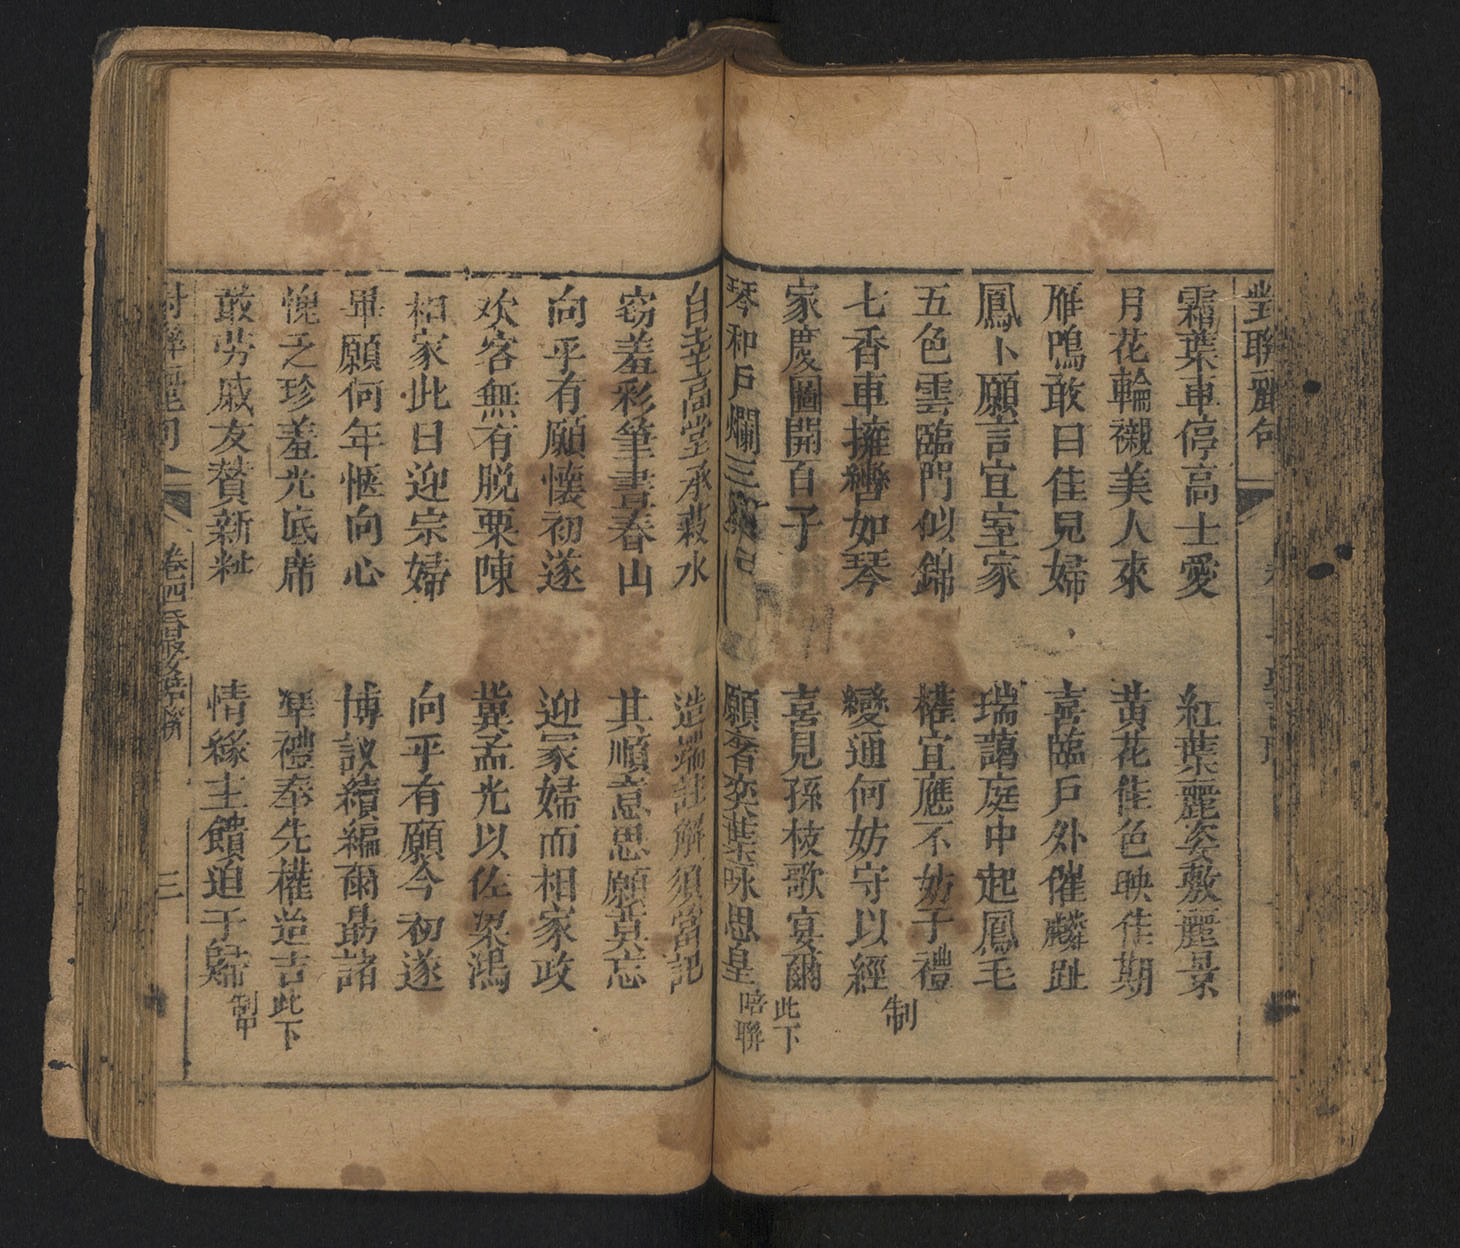 對聯麗句
霜葉車停高士愛 紅葉麗姿敷麗景
月花輪襯美人來 黃花佳色映佳期
雁鳴敢曰佳見婦 喜臨戶外催麟趾
鳳卜願言宜室家 瑞藹庭中起鳳毛
五色雲臨門似錦 權宜應不妨于禮
七香車擁轡如琴 變通何妨守以經 制
家慶圖開百子 喜見孫枝歌宴爾 此下
琴和戶爛三 願賡奕葉咏思皇 唘聯
自幸高堂承菽水 造端註解須當記
窃羞彩筆畫春山 其順意思願莫忘
向乎有願懷初遂 迎冢婦而相家政
欢客無有脱粟陳 冀孟光以佐梁鴻
相家此日迎宗婦 向乎有願今初遂
畢願何年愜向心 博議續編爾勗諸
愧乏珍羞光底席 犖禮奉先權造吉 此下
敢劳戚友贊新粧 情緣主饋迫于歸 制
對聯麗句 卷四 三